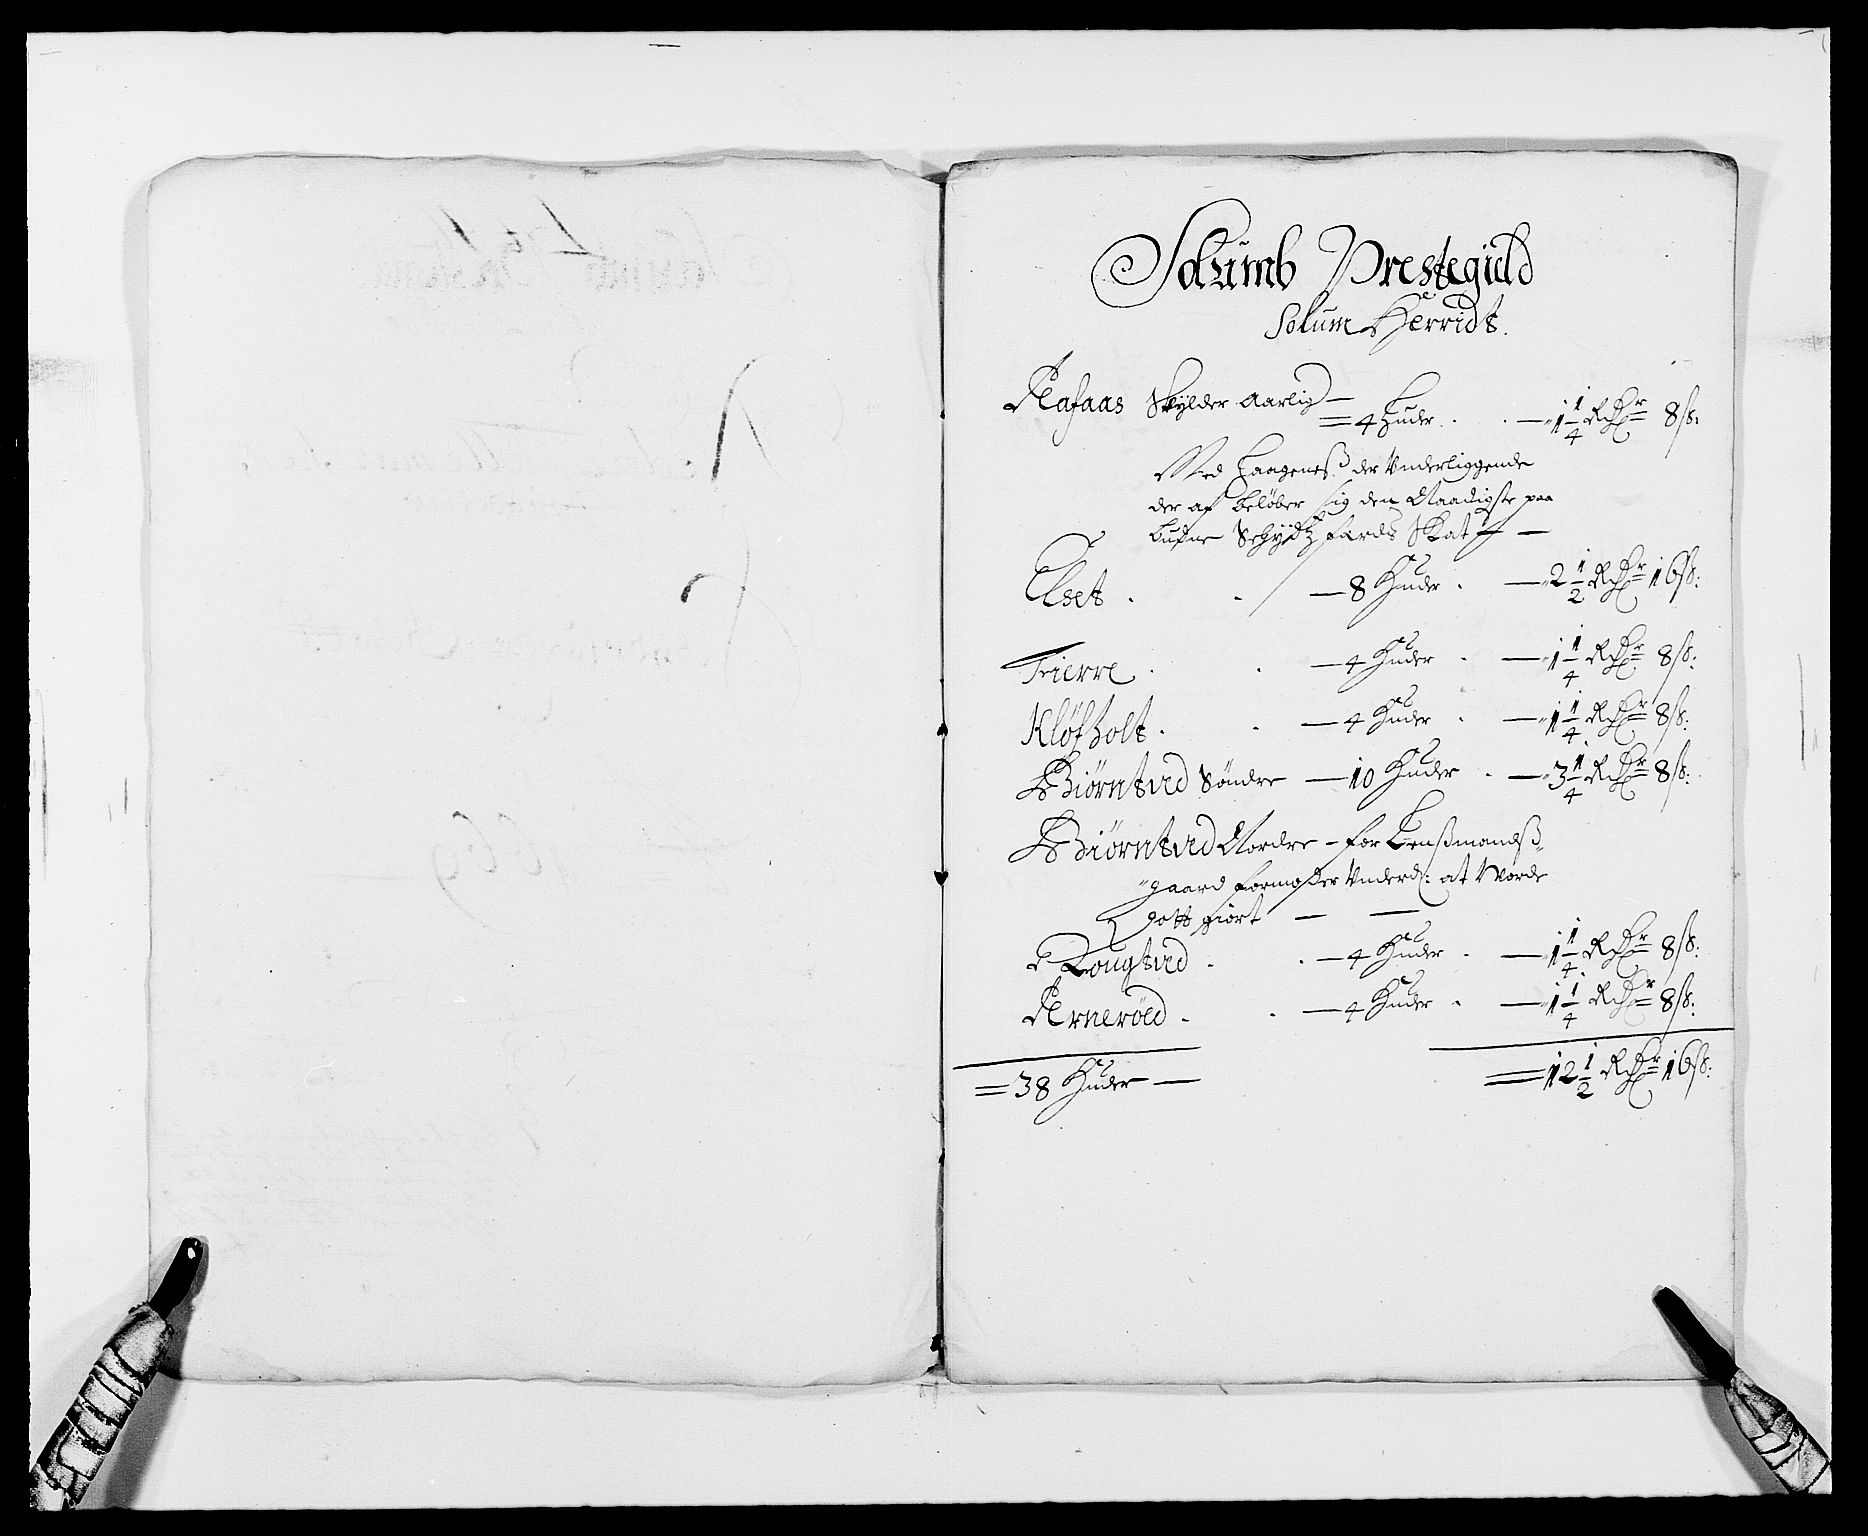 Solumb Prestegield
Solum Herridt.
Aafaas Skylder Aarlig —
= 4 Huder. . — 1 1/4 Rdr 8 ß:
Med Haageneß der Underliggende
der af beløber sig den Naadigste paa
budne Skydtzfærds Skat —
Elset . . — 8 Huder . — 2 1/2 Rdr 16 ß:
Fierre . . — 4 Huder . — 1 1/4 Rdr 8 ß:
Kløfholt . . — 4 Huder . — 1 1/4 Rdr 8 ß:
Biørntved Søndre — 10 Huder . — 3 1/4 Rdr 8 ß:
Biørntved Nordre – for Lenßmandß
gaard formoder Underd: at worde
gott giort — —
Rougtved . . — 4 Huder . — 1 1/4 Rdr 8 ß:
Arnerød . . — 4 Huder . — 1 1/4 Rdr 8 ß:
= 38 Huder — = 12 1/2 Rdr 16 ß: